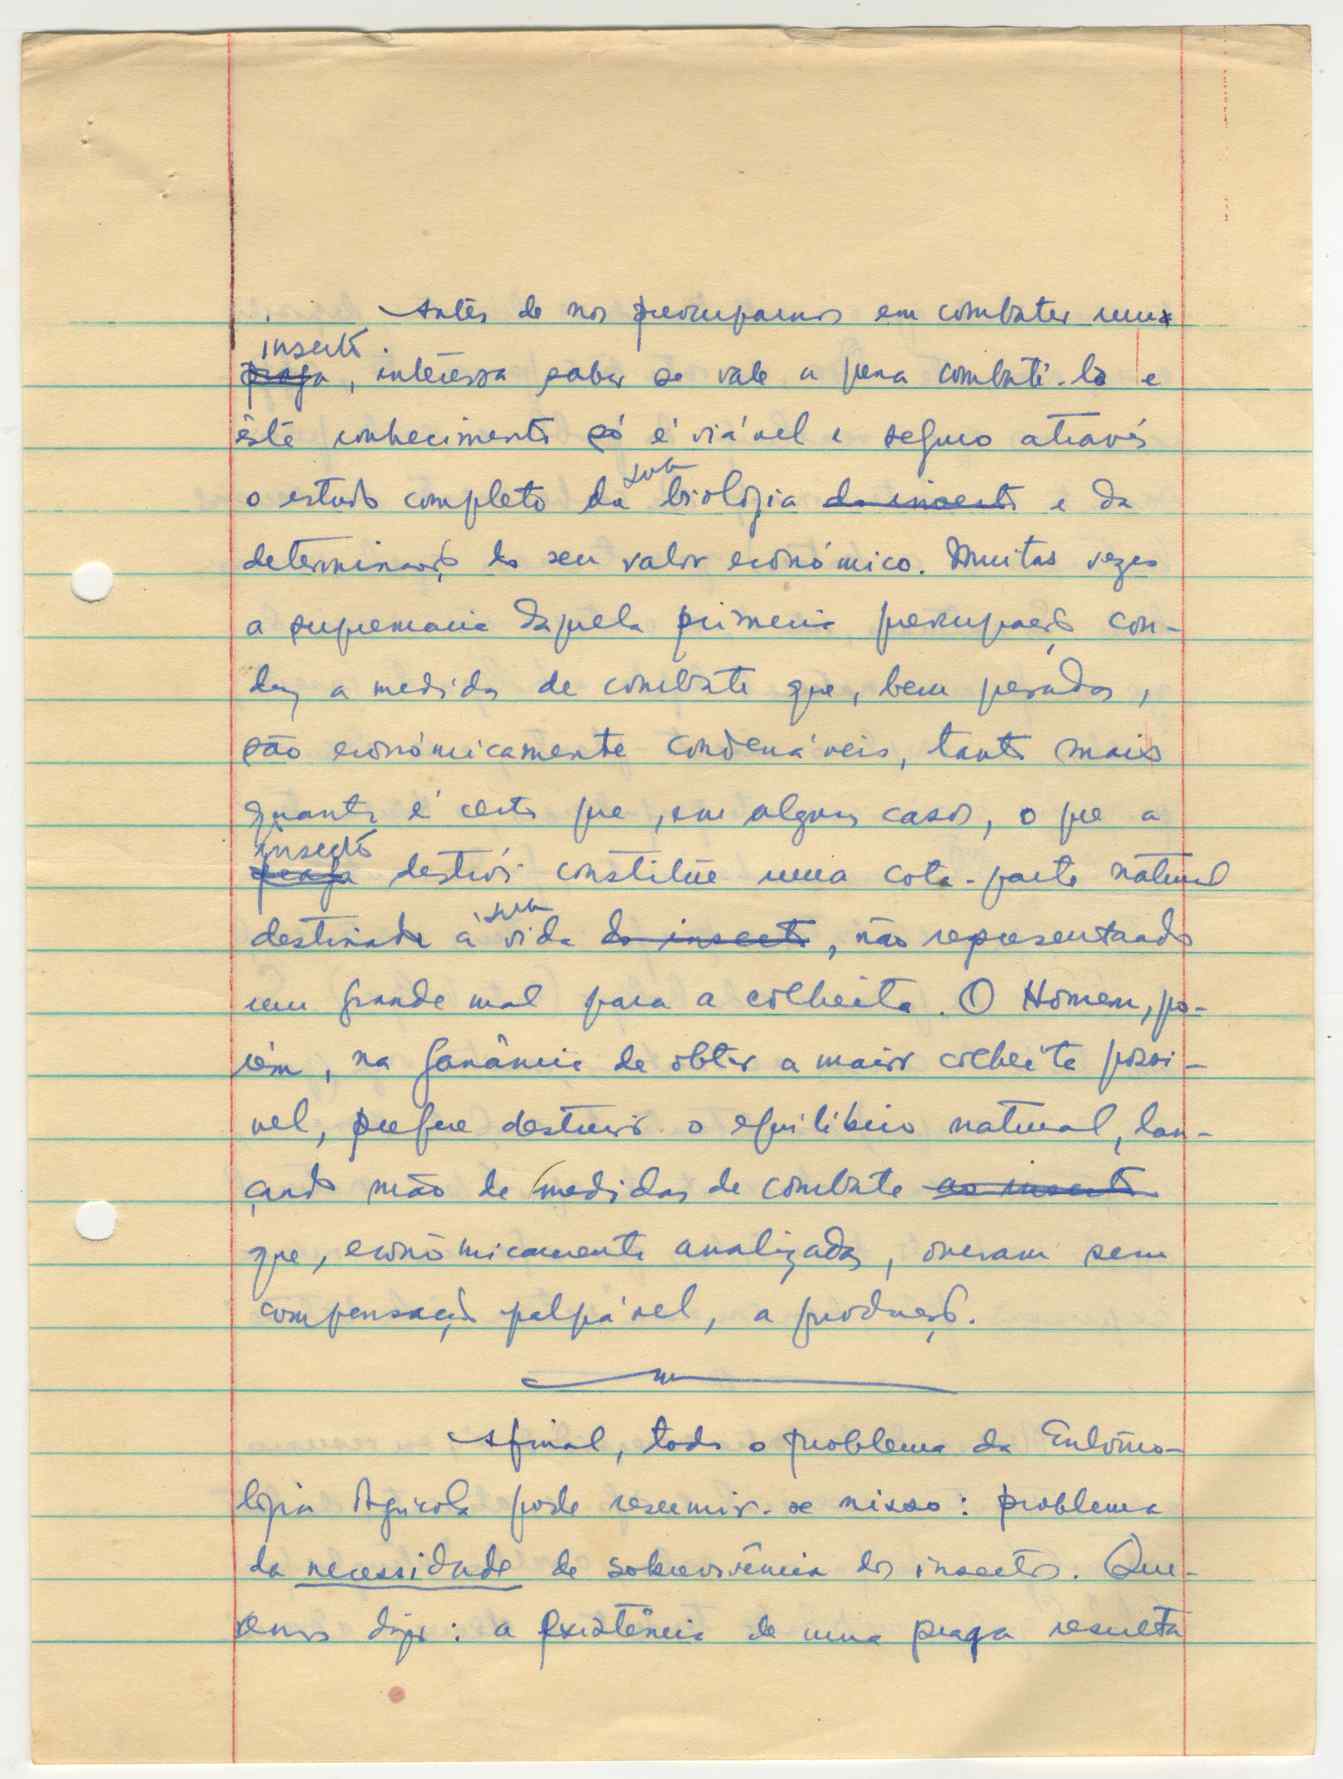 Antes de nos preocuparmos em combater um
insecto
praga, interessa saber se vale a pena combatê-lo e
êste conhecimento só é viável e seguro através
sua
o estudo completo da biologia do insecto e da
determinação do seu valor económico. Muitas vezes
a supremacia daquela primeira preocupação con-
duz a medidas de combate que, bem pesadas,
são económicamente condenáveis, tanto mais
quanto é certo que, em alguns casos, o que a
insecto
praga destrói constitue uma cota-parte natural
sua
destinada à vida do insecto, não representando
um grande mal para a colheita. O Homem, po-
rém, na ganância de obter a maior colheita possi-
vel, prefere destruir o equilíbrio natural, lan-
çando mão de medidas de combate ao insecto
que, econômicamente analizadas, oneram sem
compensação palpável, a produção.
Afinal, todo o problema da Entomo-
logia Agricola pode resumir-se nisso: problema
da necessidade de sobrevivência dos insectos. Que-
remos dizer: a existência de uma praga resulta